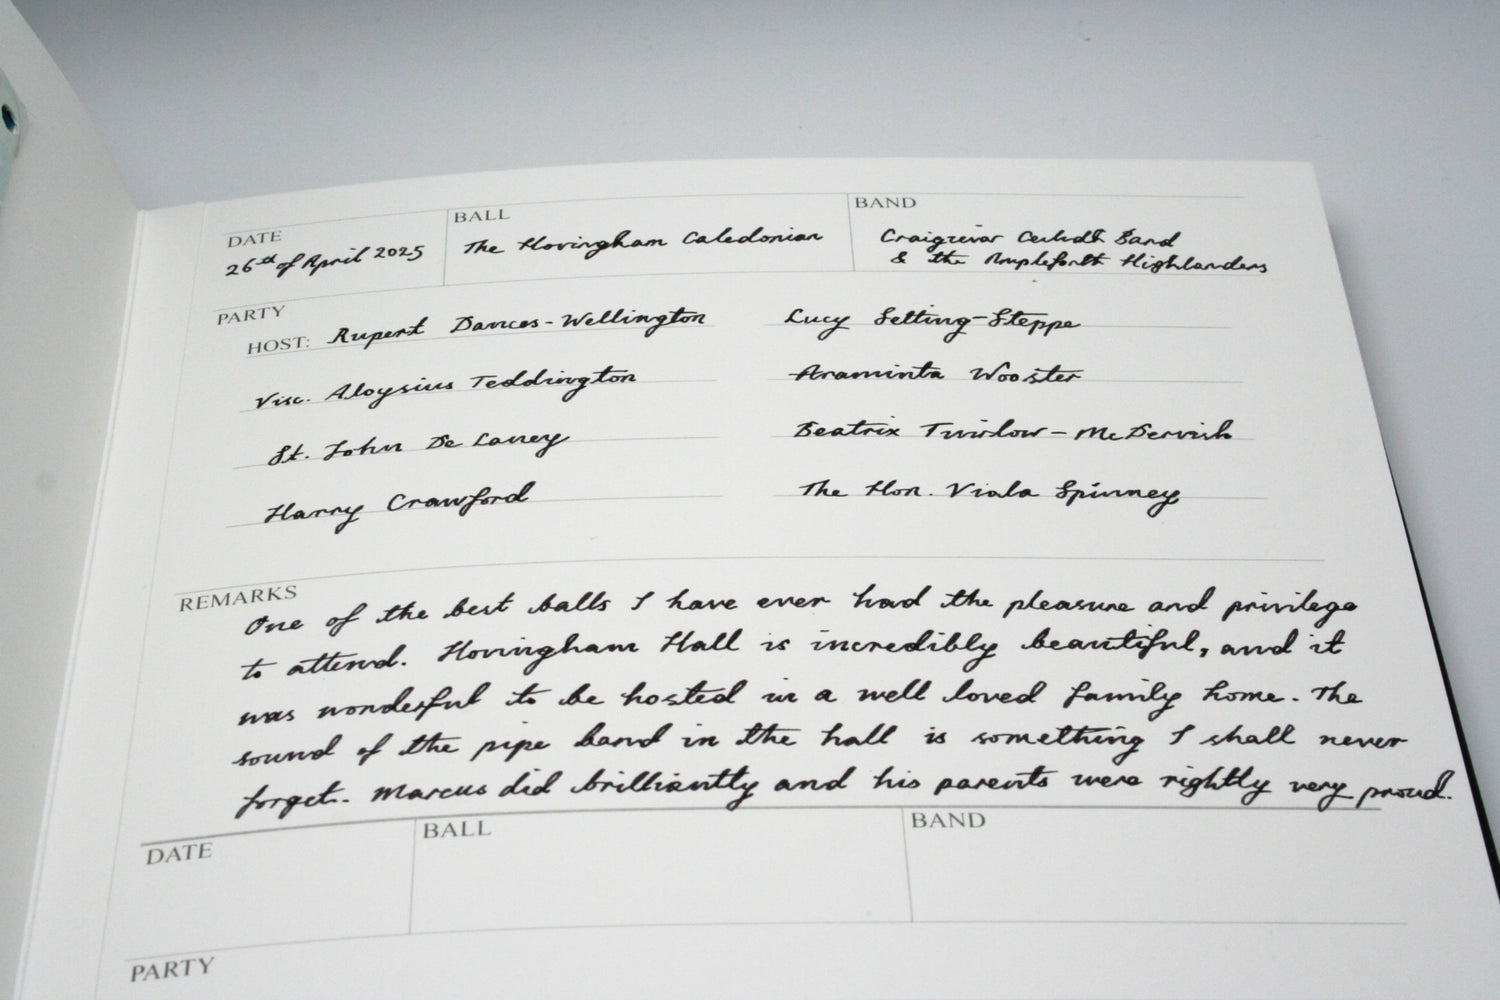 DATE
26th of April 2025
BALL
The Hovingham Caledonian
BAND
Craigievar Ceilidh Band
& the Ampleforth Highlanders
PARTY
HOST: Rupert Dances-Wellington
Lucy Setting-Steppe
Visc. Aloysius Teddington
Araminta Wooster
St. John De Laney
Beatrix Twirlow-McDervish
Harry Crawford
The Hon. Viola Spinney
REMARKS
One of the best balls I have ever had the pleasure and privilege
to attend. Hovingham Hall is incredibly beautiful, and it
was wonderful to be hosted in a well loved family home. The
sound of the pipe band in the hall is something I shall never
forget. Marcus did brilliantly and his parents were rightly very proud.
DATE
BALL
BAND
PARTY